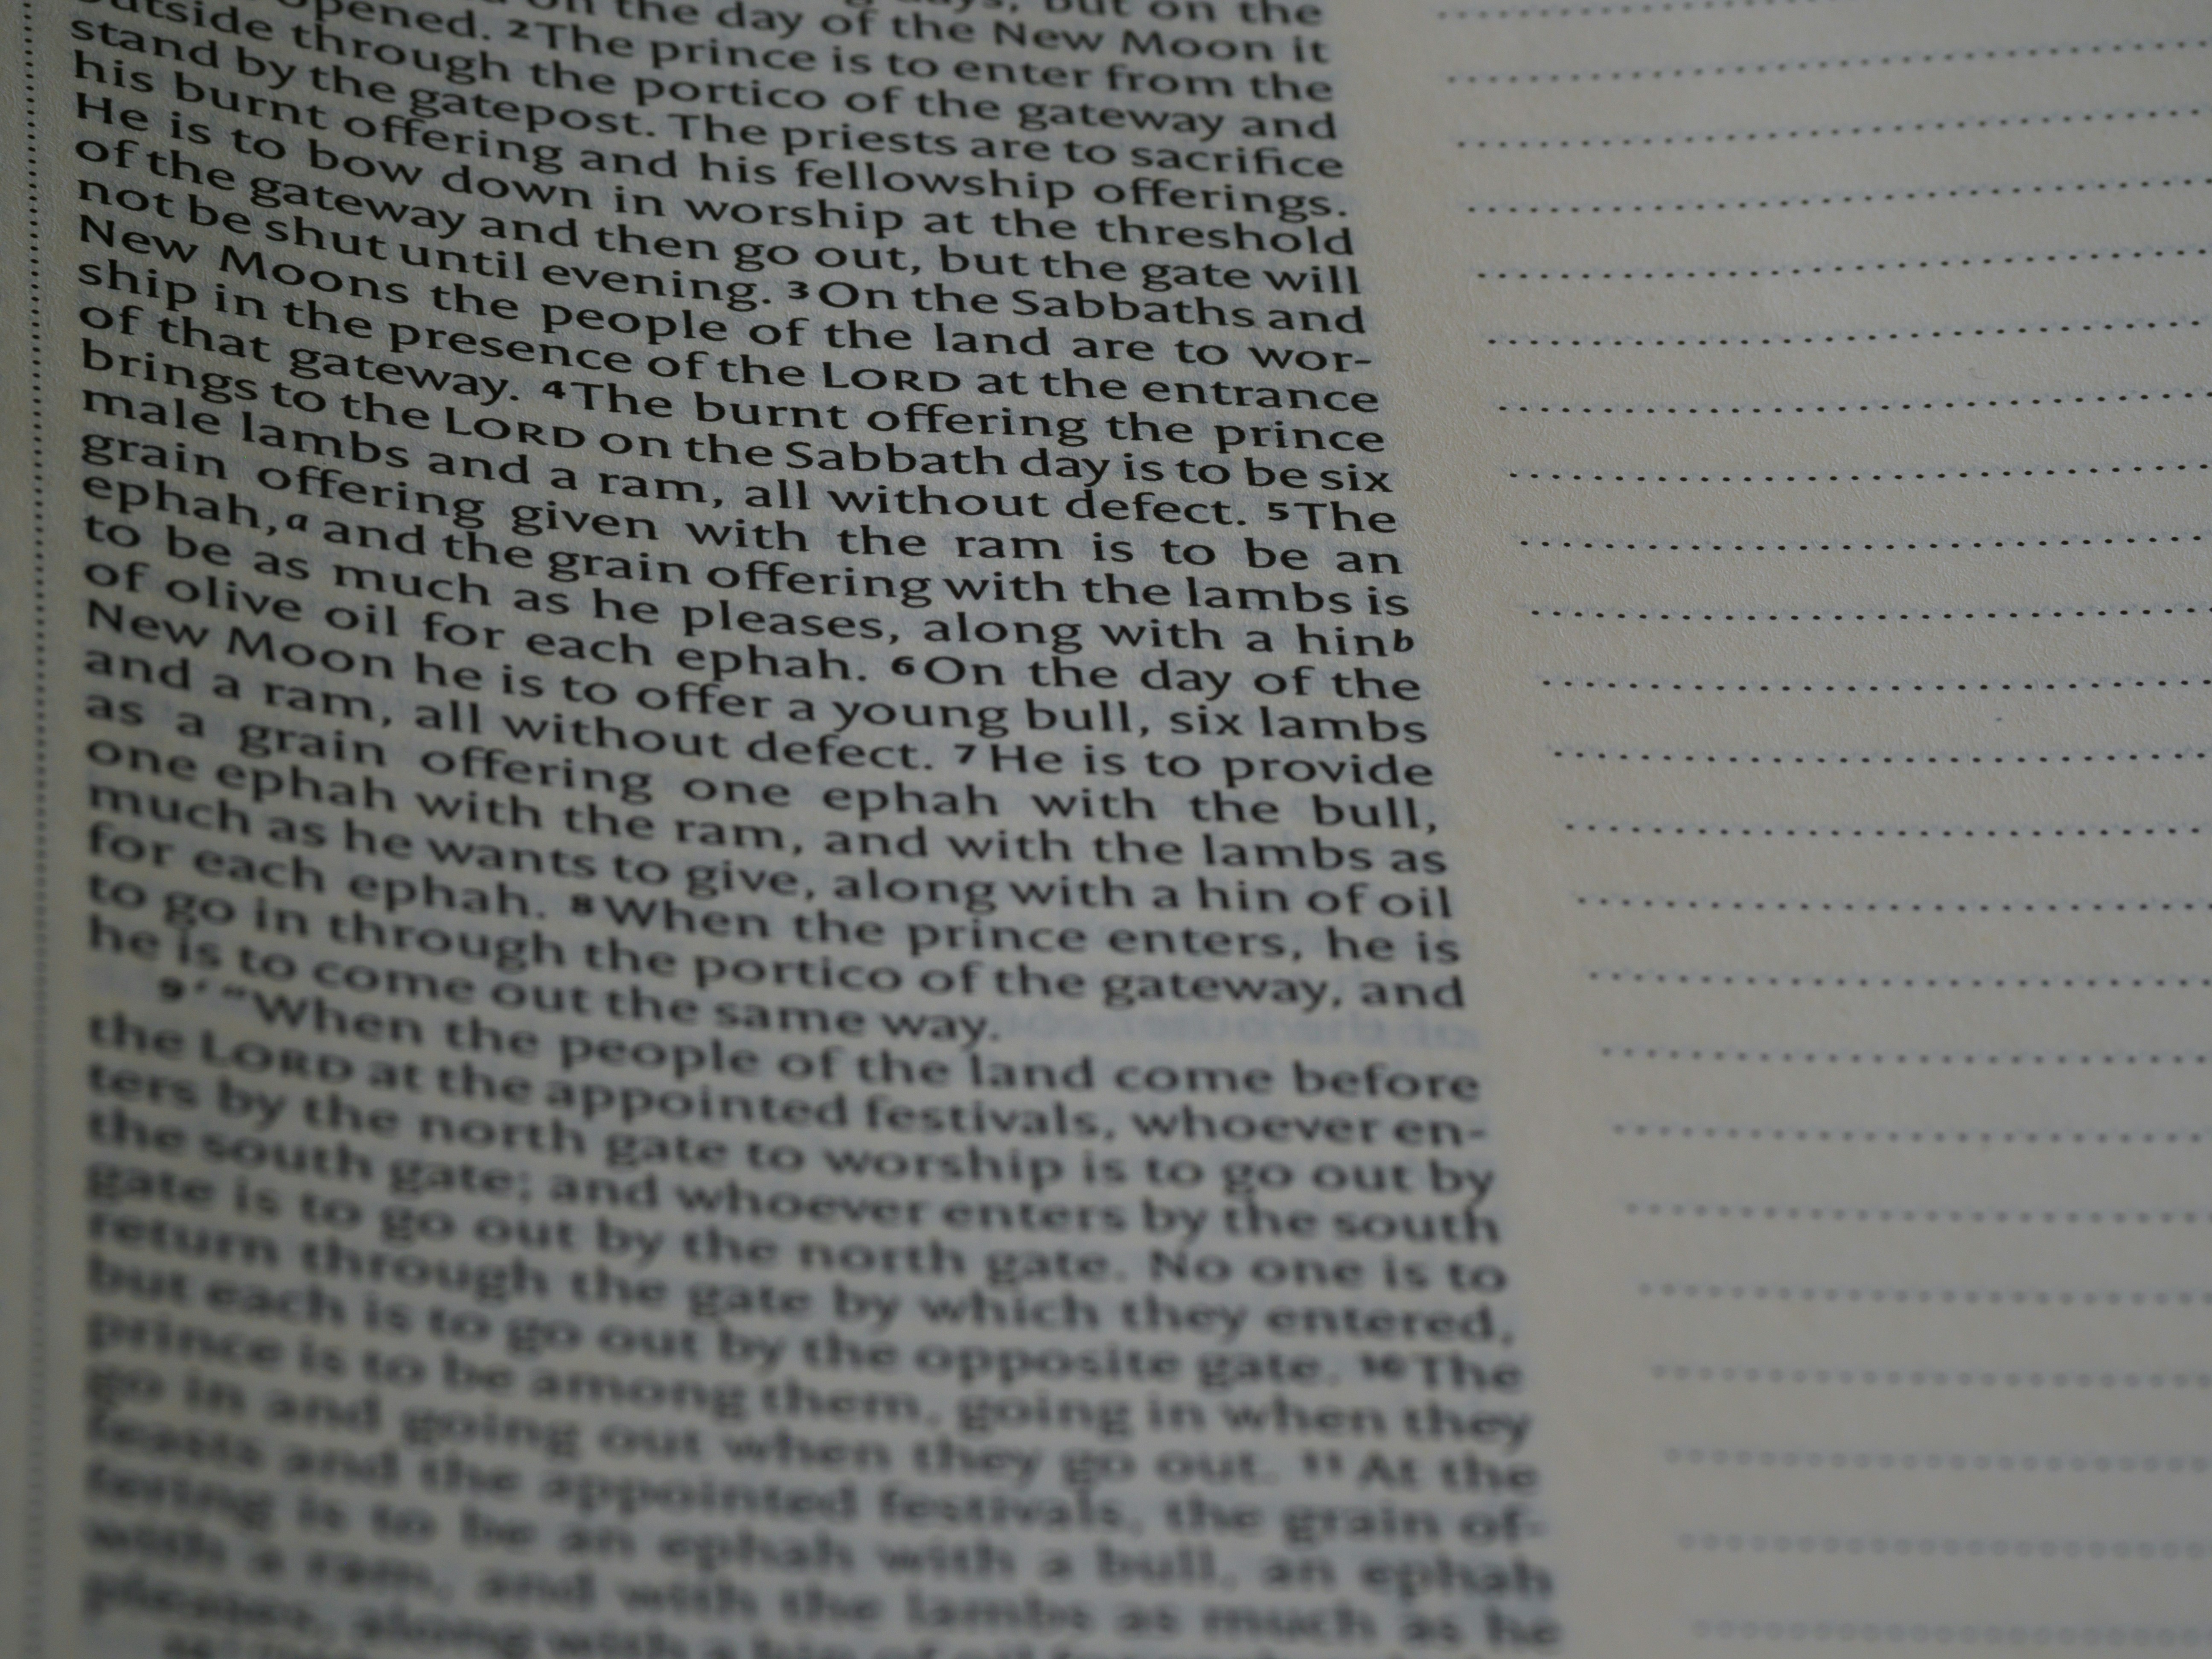 but on the
opened. on the day of the New Moon it
outside through 2 The prince is to enter from the
stand by the the portico of the gateway and
his burnt gatepost. The priests are to sacrifice
He is to offering and his fellowship offerings.
of the bow down in worship at the threshold
not be gateway and then go out, but the gate will
New shut until evening. 3 On the Sabbaths and
ship in Moons the people of the land are to wor-
of that the presence of the LORD at the entrance
brings gateway. 4 The burnt offering the prince
male to the LORD on the Sabbath day is to be six
grain lambs and a ram, all without defect. 5 The
ephah,a offering given with the ram is to be an
to be and the grain offering with the lambs is
of olive as much as he pleases, along with a hinb
New oil for each ephah. 6 On the day of the
and a Moon he is to offer a young bull, six lambs
as a ram, all without defect. 7 He is to provide
one grain offering one ephah with the bull,
much ephah with the ram, and with the lambs as
for each as he wants to give, along with a hin of oil
to go ephah. 8 When the prince enters, he is
he is in through the portico of the gateway, and
to come out the same way.
9 ‘ “When the people of the land come before
the LORD at the appointed festivals, whoever en-
ters by the north gate to worship is to go out by
the south gate; and whoever enters by the south
gate is to go out by the north gate. No one is to
return through the gate by which they entered,
but each is to go out by the opposite gate. 10 The
prince is to be among them, going in when they
go in and going out when they go out. 11 At the
feasts and the appointed festivals, the grain of-
fering is to be an ephah with a bull, an ephah
with a ram, and with the lambs as much as he
pleases, along with a hin of oil